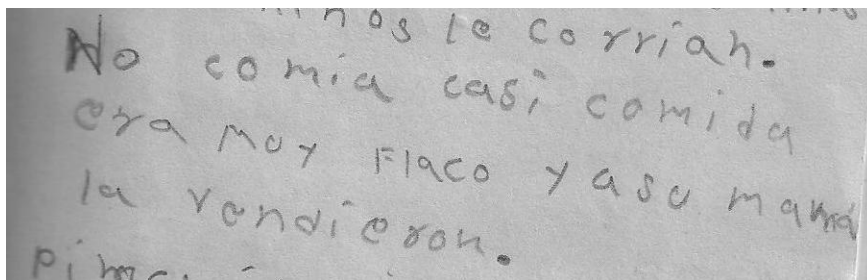 le corrian.
No comia casi comida
era muy Flaco y asu mamá
la vendieron.